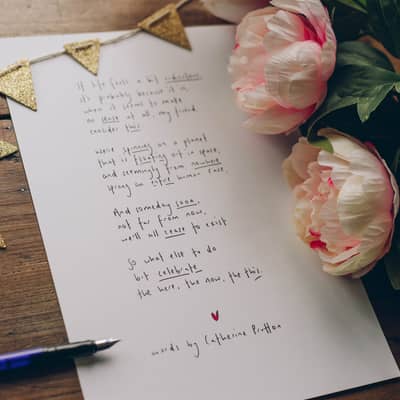 if life feels a bit ridiculous,
it's probably because it is.
when it seems to make
no sense at all, my friend,
consider this.
We're spinning on a planet
that is floating out in space,
and seemingly from nowhere
sprung an entire human race.
And someday soon,
not far from now,
we'll all cease to exist
So what else to do
but celebrate
the here, the now, the this.
words by Catherine Prutton